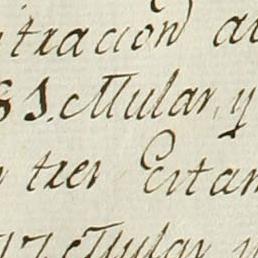 itracion au
S 1. Mular, y
tres Estam
17. Mular, y